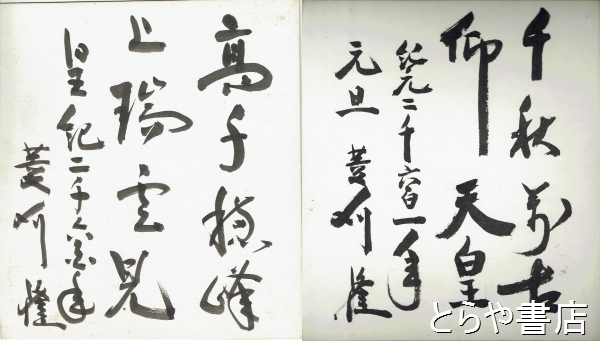 高千穂峰
上瑞雲見
皇紀二千六百年
菱刈隆
千秋萬古
仰天皇
紀元二千六百一年
元旦 菱刈隆
とらや書店